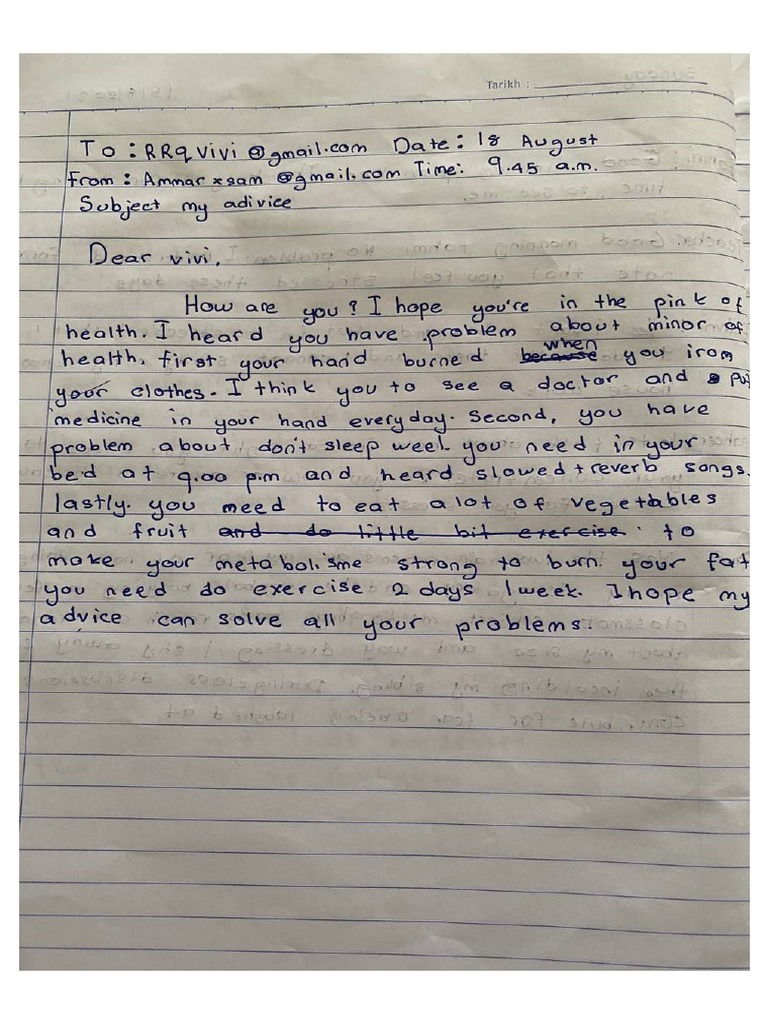 Tarikh :
To : RRq vivi @gmail.com Date : 18 August
From : Ammar xsam @gmail.com Time: 9.45 a.m.
Subject my adivice
Dear vivi,
How are you? I hope you're in the pink of
health. I heard you have problem about minor of
health, first your hand burned because when you iron
your clothes. I think you to see a doctor and put
medicine in your hand everyday. Second, you have
problem about don't sleep weel. you need in your
bed at 9.00 p.m and heard slowed + reverb songs.
lastly. you need to eat a lot of vegetables
and fruit and do little bit exercise. to
make your metabolisme strong to burn your fat
you need do exercise 2 days 1 week. I hope my
advice can solve all your problems.